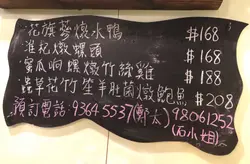 花旗蔘燉水鴨 $168
淮杞燉螺頭 $168
蜜瓜响螺燉竹絲雞 $188
蟲草花竹笙羊肚菌燉鮑魚 $208
預訂電話:9364 5537(鄭太) 98061252
(石小姐)